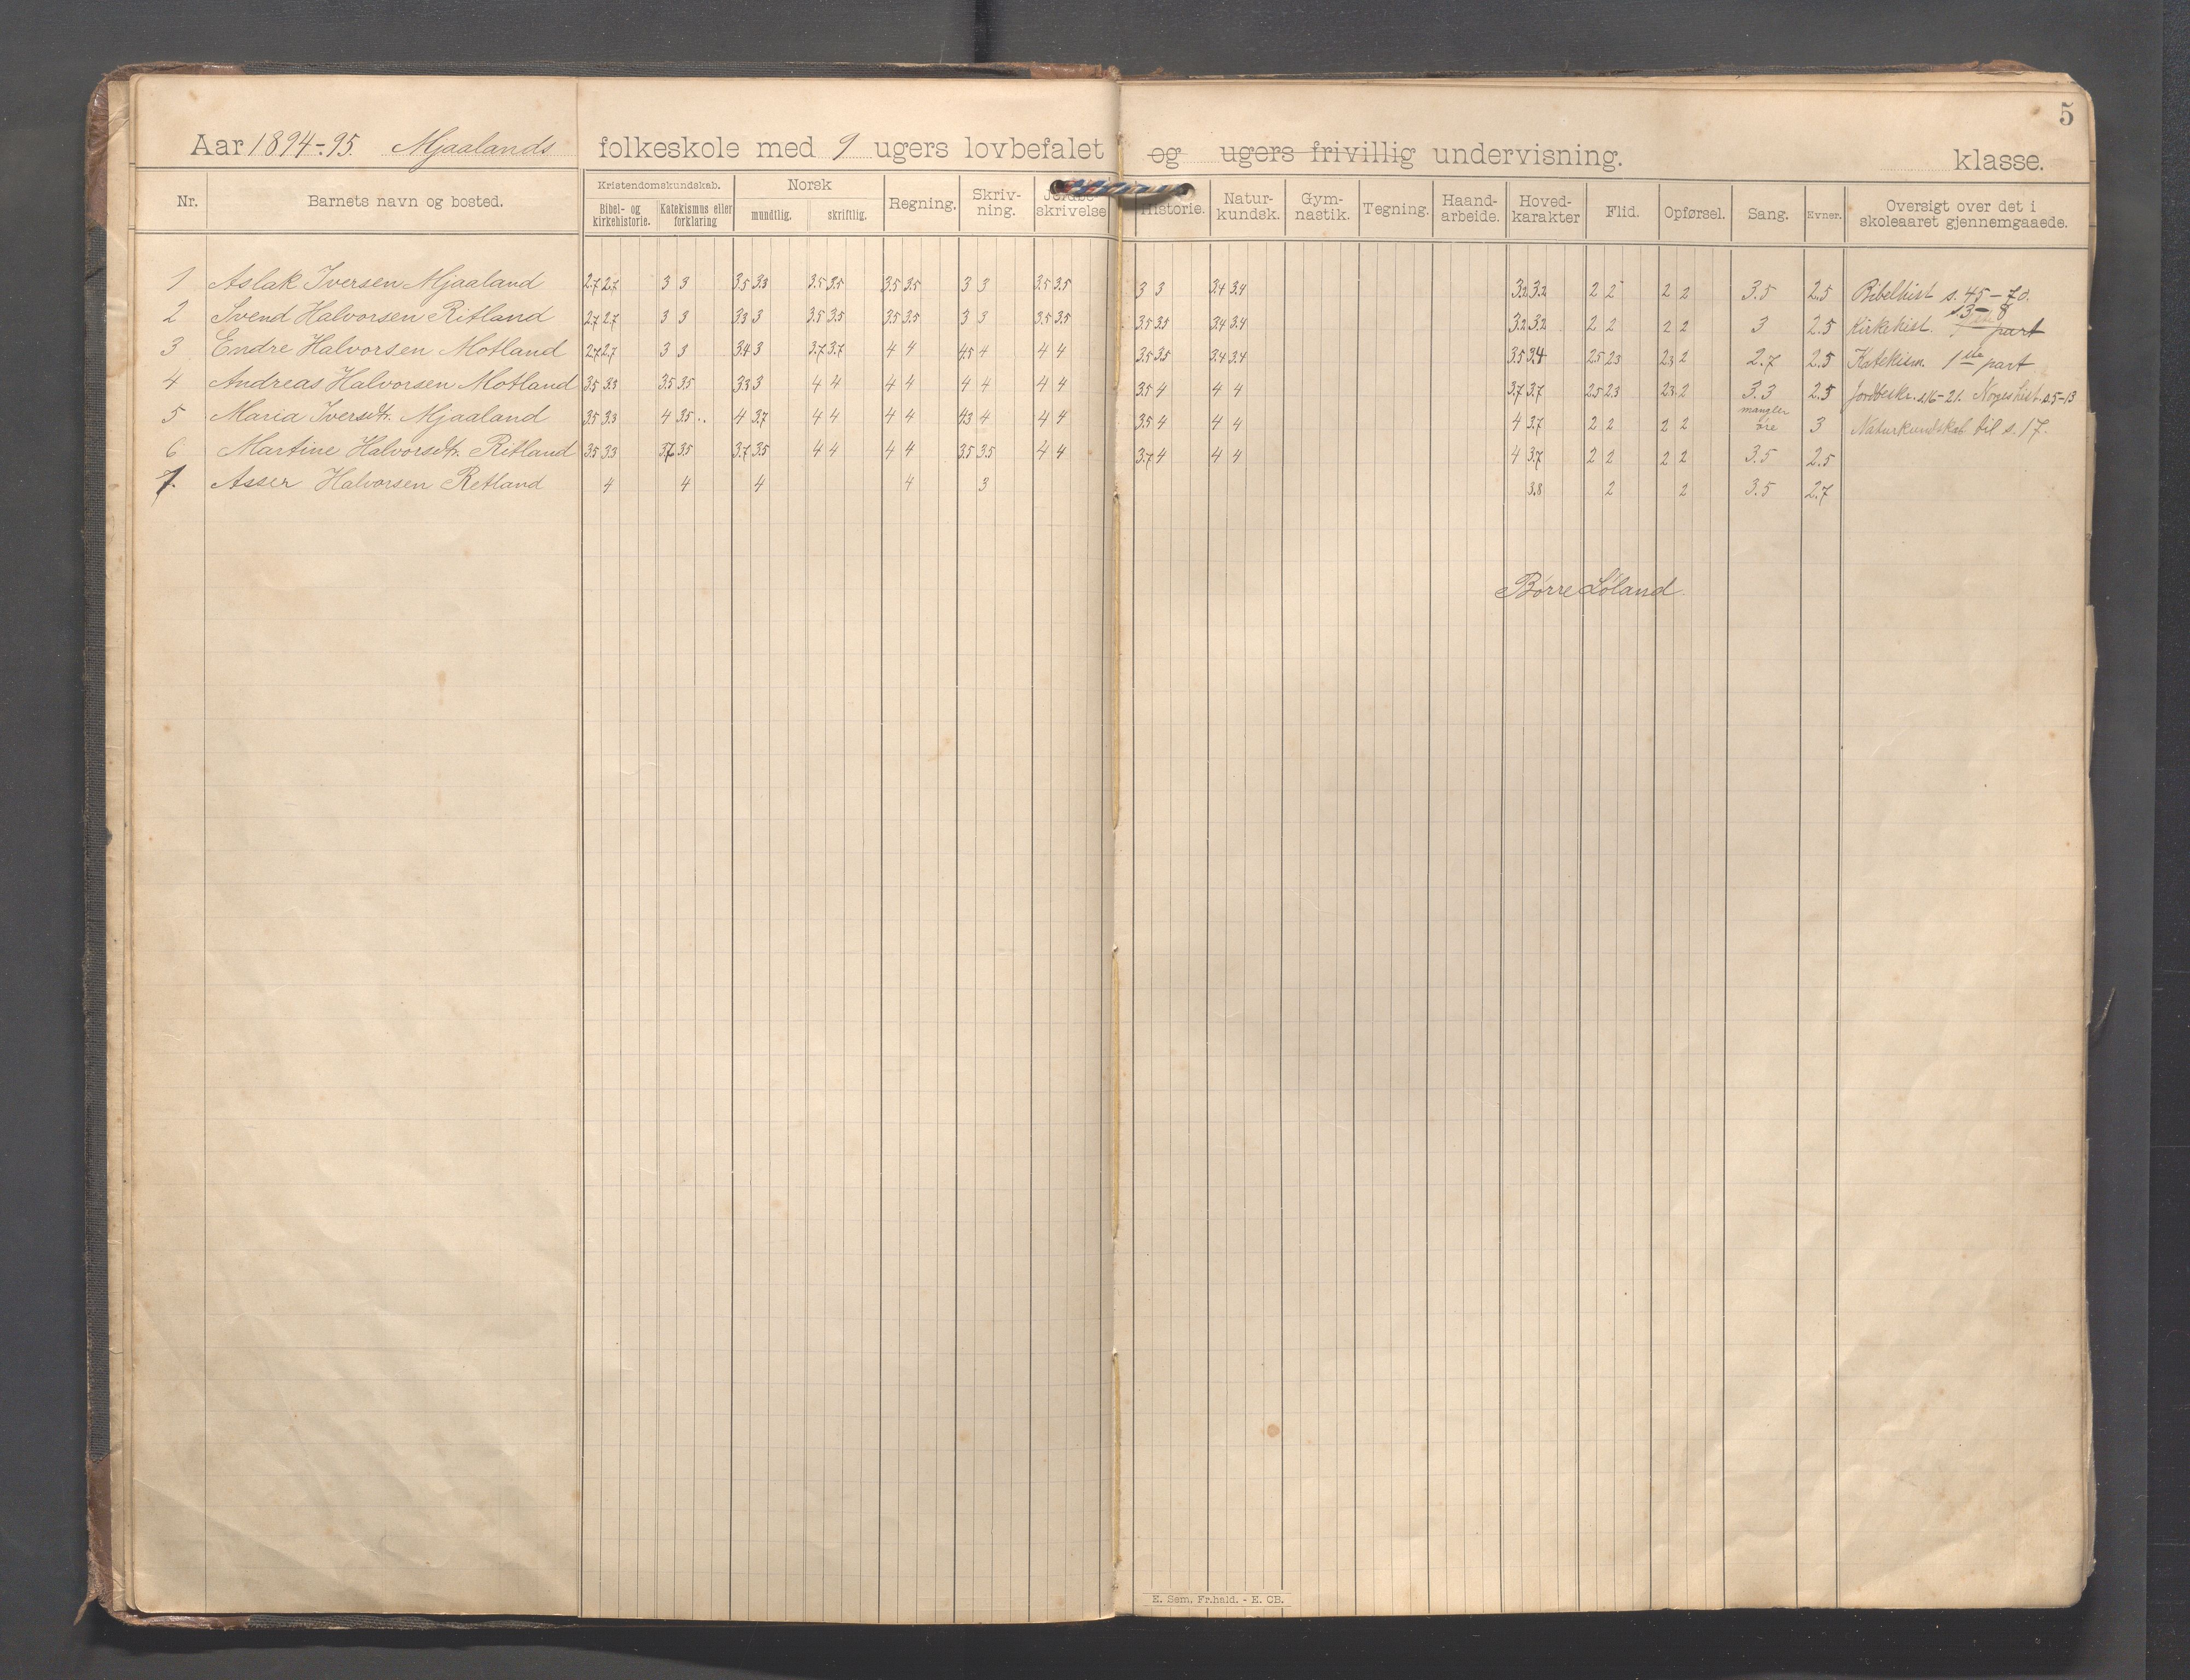 5
Aar 1894-95. Mjaalands folkeskole med 9 ugers lovbefalet og ugers frivillig undervisning. klasse.
Nr. Barnets navn og bosted. Kristendomskundskab. Norsk Regning. Skriv-ning. skrivelse Historie. Natur-kundsk. Gym-nastik. Tegning. Haand-arbeide. Hoved-karakter Flid. Opførsel. Sang. Evner. Oversigt over det i skoleaaret gjennemgaaede.
Bibel- og kirkehistorie. Katekismus eller forklaring mundtlig. skriftlig.
1 Aslak Iversen Mjaaland 2.7 2.7 3 3 3.5 3.3 3.5 3.5 3.5 3.5 3 3 3.5 3.5 3 3 3.4 3.4 3.2 3.2 2 2 2 2 3.5 2.5 Bibelhist s. 45-70.
2 Svend Halvorsen Ritland 2.7 2.7 3 3 3.3 3 3.5 3.5 3.5 3.5 3 3 3.5 3.5 3.5 3.5 3.4 3.4 3.2 3.2 2 2 2 2 3 2.5 Kirkehist. s3-8 part
3 Endre Halvorsen Motland 2.7 2.7 3 3 3.4 3 3.7 3.7 4 4 4.5 4 4 4 3.5 3.5 3.4 3.4 3.5 3.4 2.5 2.3 2.3 2 2.7 2.5 Katekism. 1ste part
4 Andreas Halvorsen Motland 3.5 3.3 3.5 3.5 3.3 3 4 4 4 4 4 4 4 4 3.5 4 4 4 3.7 3.7 2.5 2.3 2.3 2 3.3 2.5 Jordbeskr. s.16-21. Norges hist. s.5-13
5 Maria Iversdtr. Mjaaland 3.5 3.3 4 3.5 4 3.7 4 4 4 4 4.3 4 4 4 3.5 4 4 4 4 3.7 2 2 2 2 mangler øre 3 Naturkundskab til s. 17.
6 Martine Halvorsdtr. Ritland 3.5 3.3 3.7 3.5 3.7 3.5 4 4 4 4 3.5 3.5 4 4 3.7 4 4 4 4 3.7 2 2 2 2 3.5 2.5
7. Asser Halvorsen Retland 4 4 4 4 3 3.8 2 2 3.5 2.7
Børre Løland.
E. Sem, Fr.hald. - E. CB.